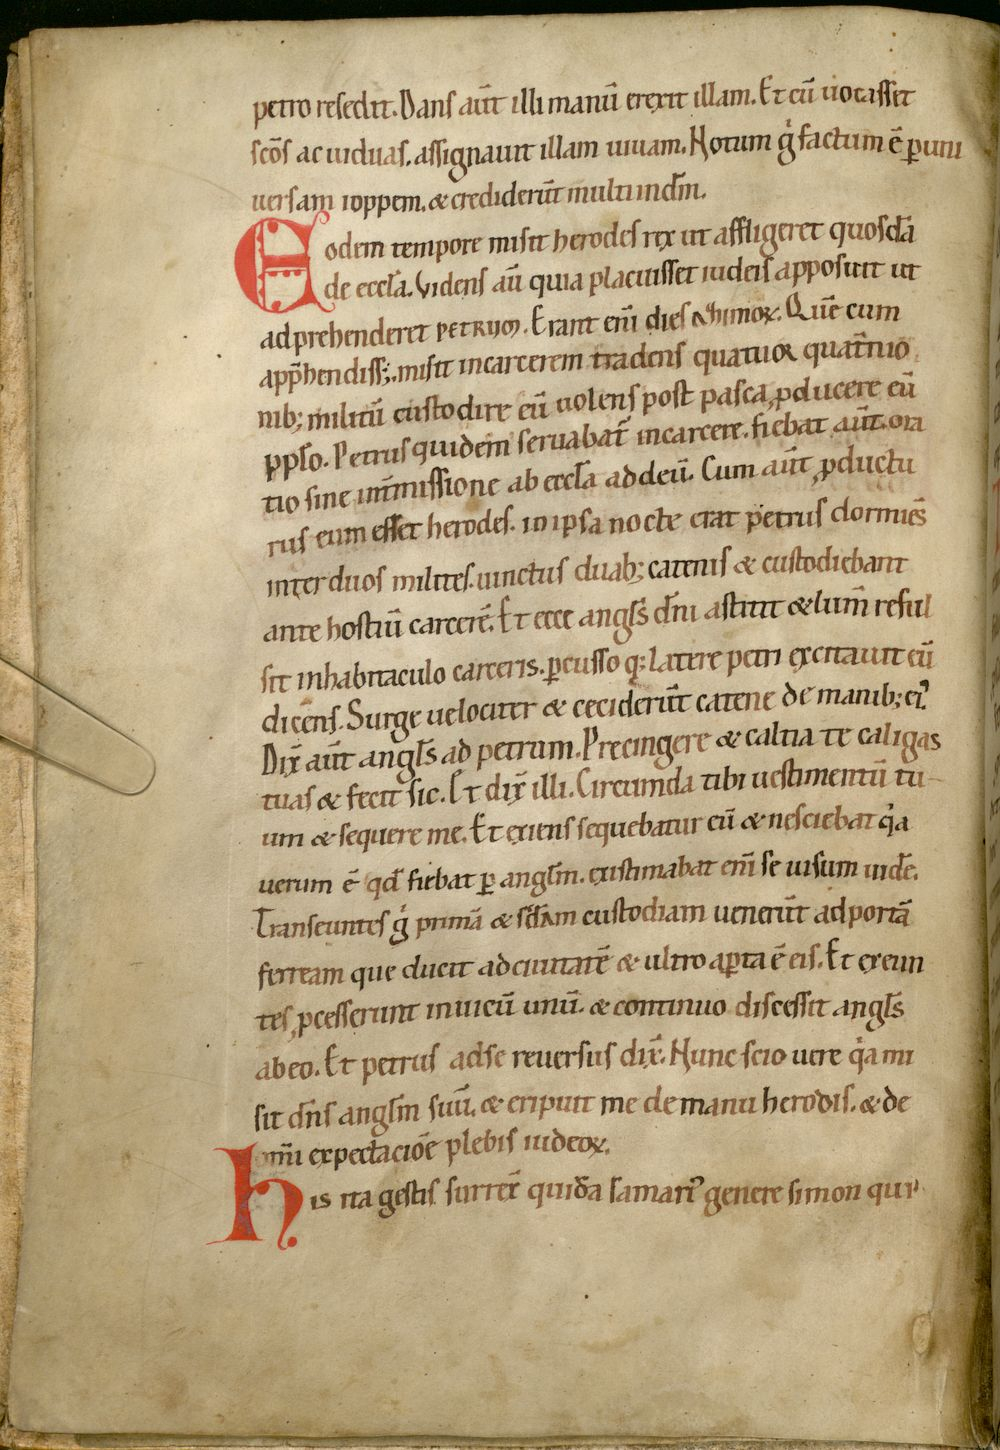 petro resedit. Dans aūt illi manū erexit illam. Et cū uocasset
sc̄os ac uiduas. assignauit illam uiuam. Notum gͥ factum ē ꝑ uni
uersam ioppem. & credider̄t multi in dn̄m.
Eodem tempore misit herodes rex ut affligeret quosdā
de eccl̄a. Videns aū quia placuisset iudeis apposuit ut
adprehenderet PETRUM. Erant eni͂ dies azimoꝝ. Quē cum
app̄hendiss&. misit in carcerem tradens quatuor quat̄nio
nib; militū custodire eū uolens post pasca ꝓducere eū
ꝓpl̄o. Petrus quidem seruabat̄ in carcere. fiebat aūt ora
tio sine int̄missione ab eccl̄a ad deū. Cum aūt ꝓductu
rus eum esset herodes. in ipsa nocte erat petrus dormiēs
inter duos milites. uinctus duab; catenis & custodiebant
ante hostiū carcerē. Et ecce angl̄s dn̄i astitit & lum̄ reful
sit in habitaculo carceris. ꝑcusso q; latere petri excitauit eū
dicens. Surge uelociter & cecider̄t catene de manib; ei᾿.
Dix̄ aūt angl̄s ad petrum. Precingere & caltia te caligas
tuas & fecit sic. Et dix̄ illi. Circumda tibi uestimentū tu-
um & sequere me. Et exiens sequebatur eū & nesciebat qͥa
uerum ē qd̄ fiebat ꝑ angl̄m. existimabat eni͂ se uisum uid̄e.
Transeuntes gͥ primā & sc̄dam custodiam uener̄t ad portā
ferream que ducit ad ciuitatē & ultro aꝑta ē eis. Et exeun
tes ꝓcesserunt in uicū unū. & continuo discessit angl̄s
ab eo. Et petrus ad se reuersus dix̄. Nunc scio uere qͥa mi
sit dn̄s angl̄m suū. & eripuit me de manu herodis. & de
omi͂ expectaciōe plebis iudeoꝝ.
His ita gestis surrex̄ quidā samar᾿ genere simon qui